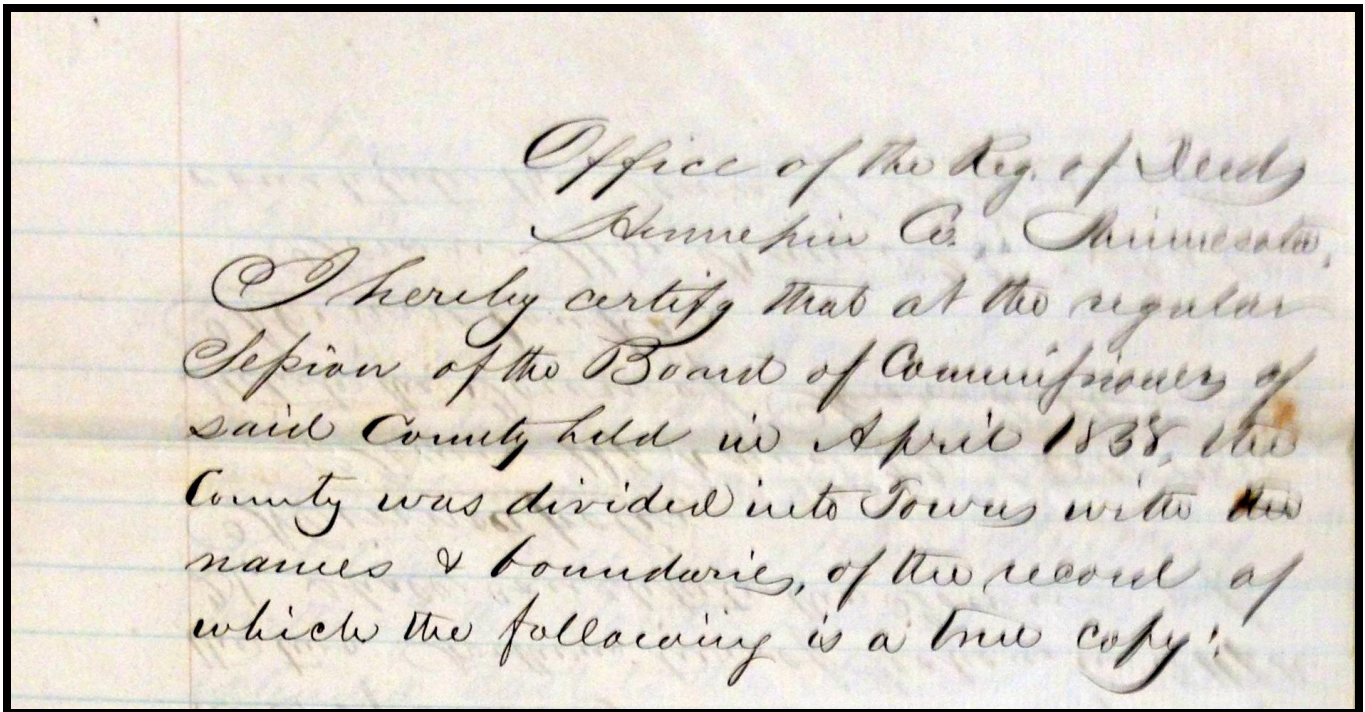 Office of the Reg. of Deeds
Hennepin Co., Minnesota,
I hereby certify that at the regular
Session of the Board of Commissioners of
said County held in April 1858, the
County was divided into Towns with the
names & boundaries, of the record of
which the following is a true copy: